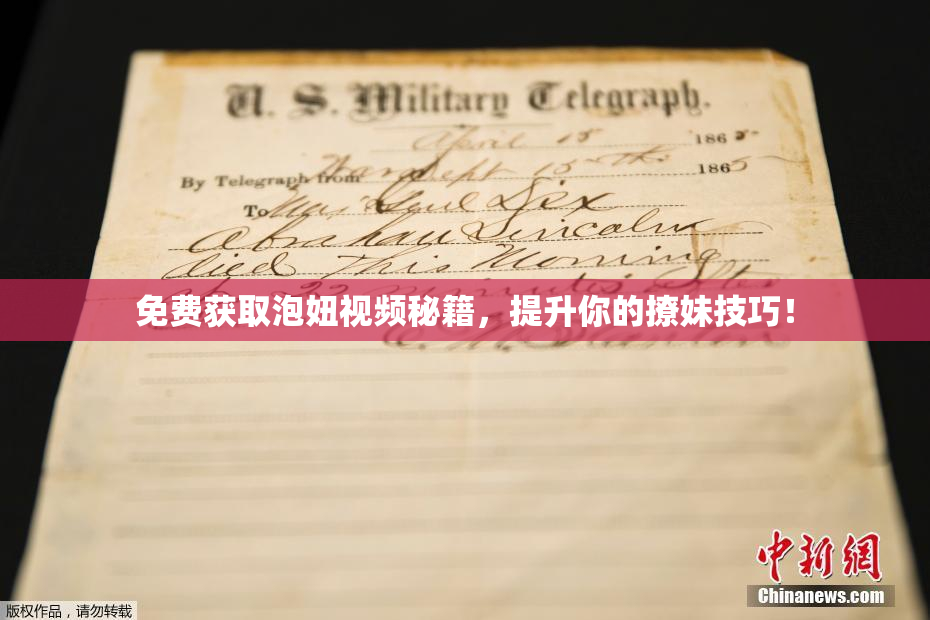 U. S. Military Telegraph.
April 15 1865
By Telegraph from War Dept 15th 1865
To Maj Genl Dix
Abraham Lincoln
died This Morning
at 22 minutes after
免费获取泡妞视频秘籍，提升你的撩妹技巧！
E. M. Stanton
中新网
Chinanews.com
版权作品，请勿转载